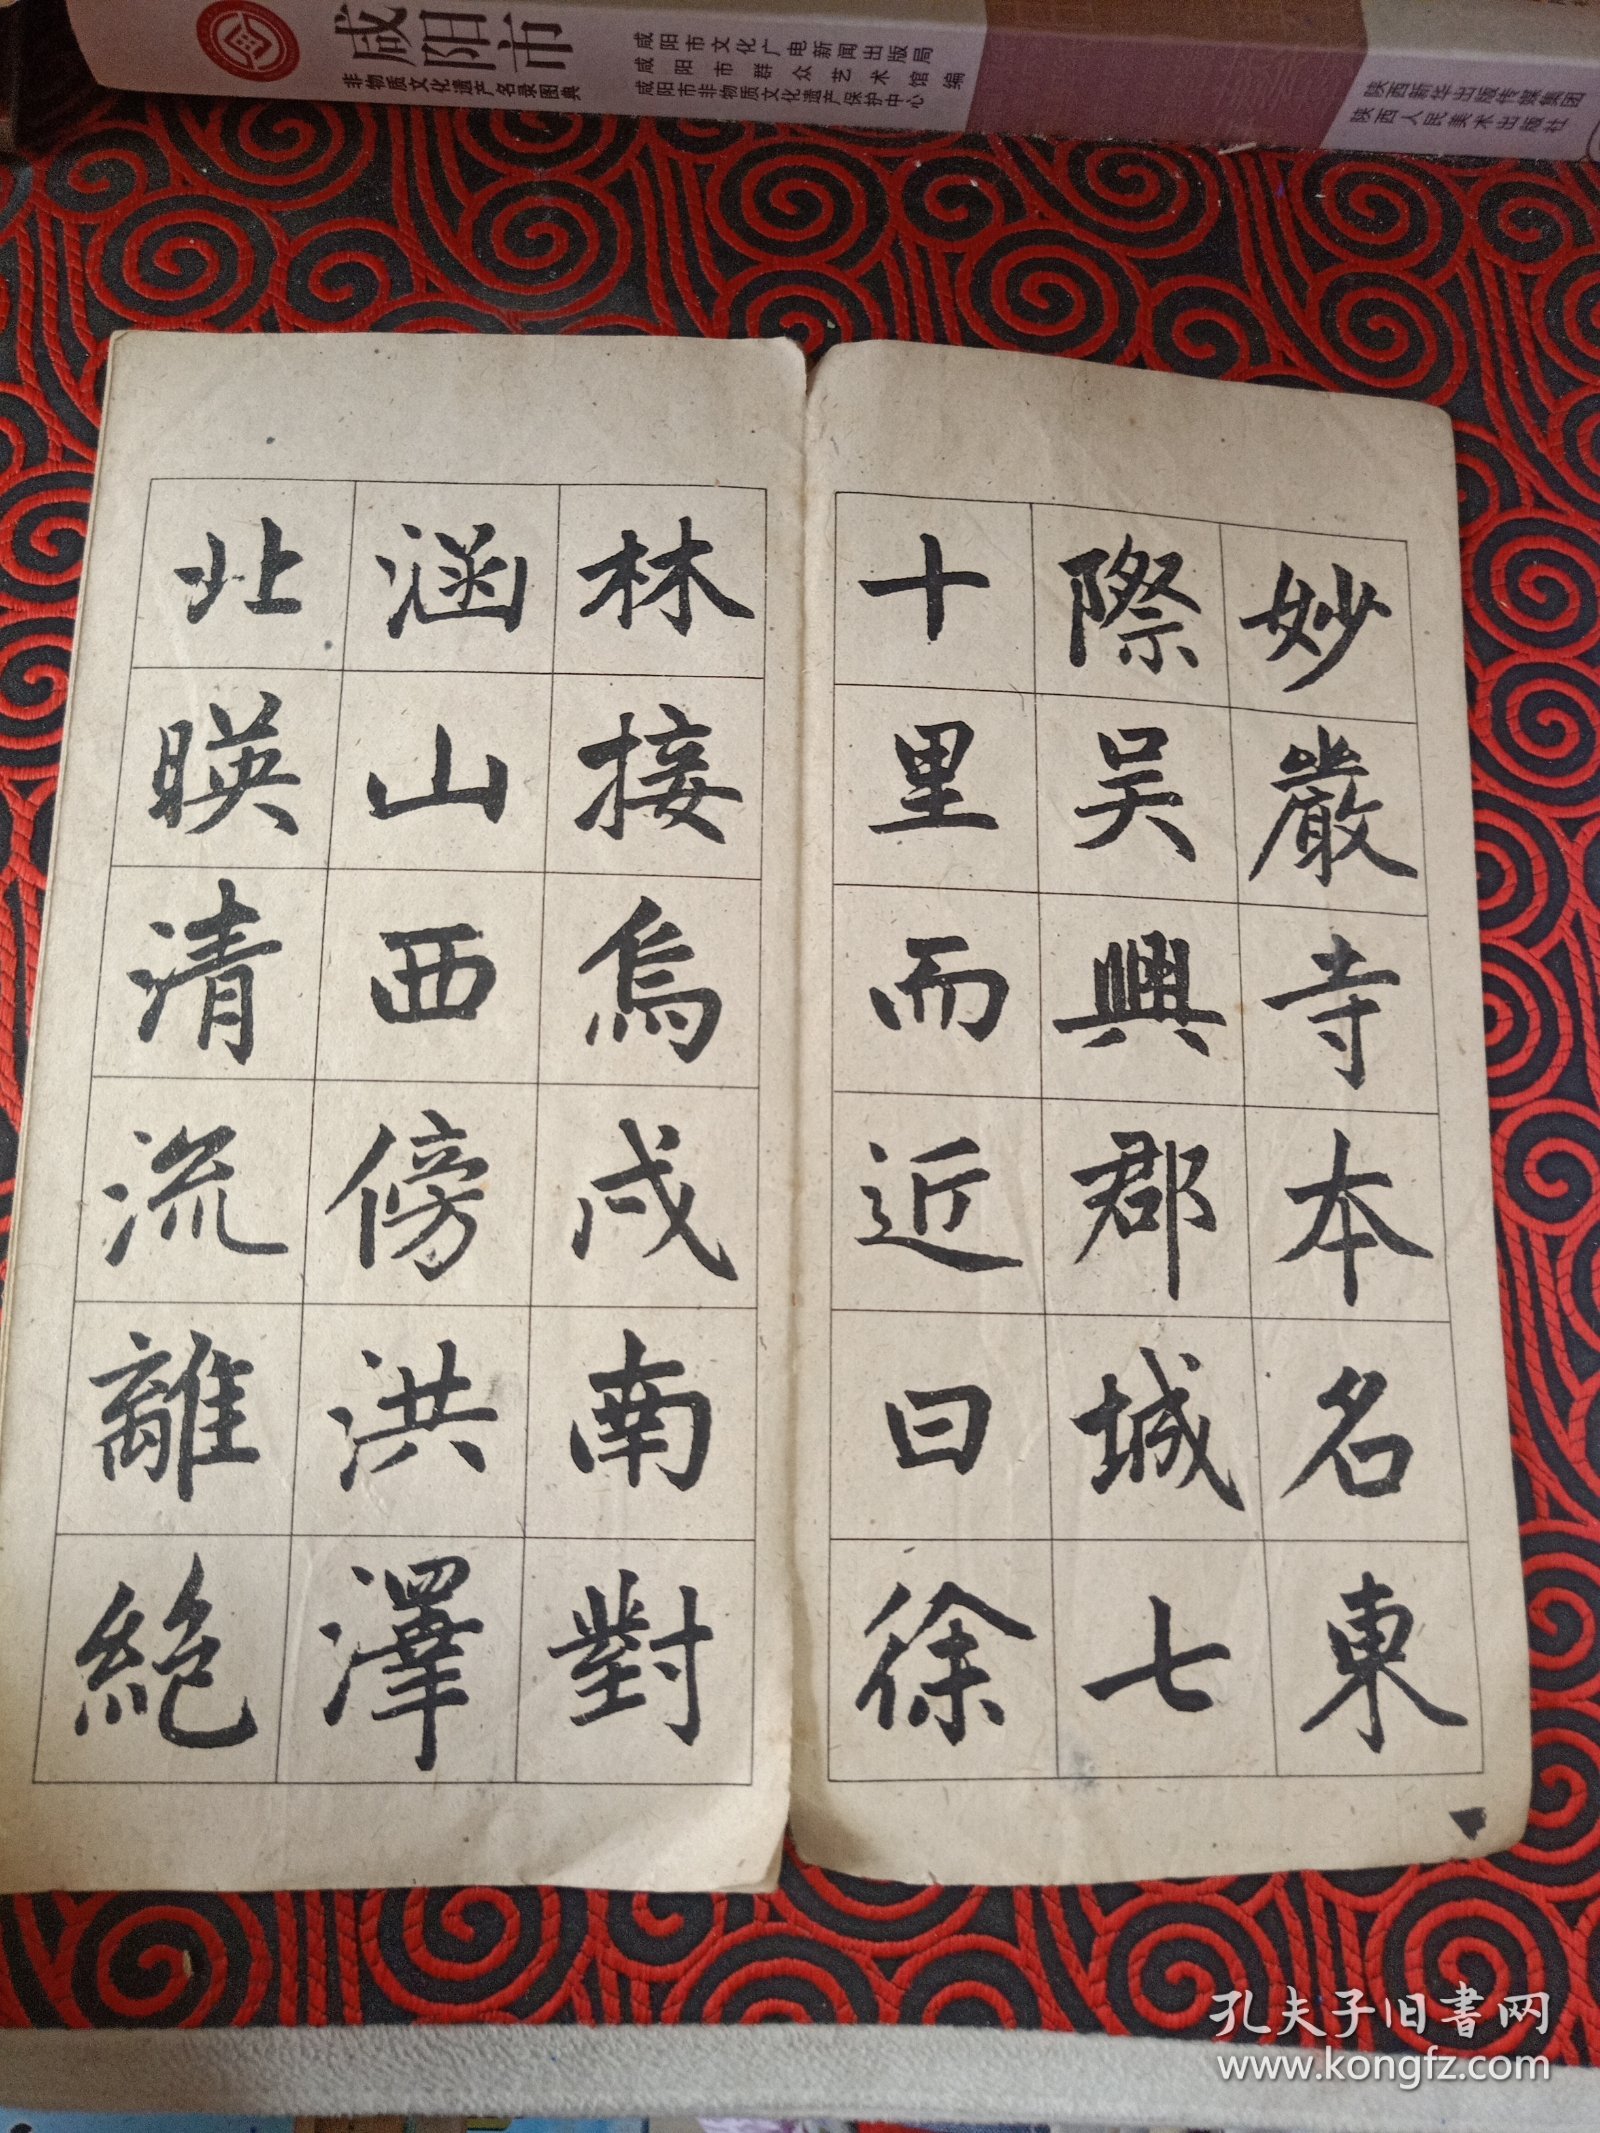 咸阳市
非物质文化遗产名录图典
咸阳市文化广电新闻出版局
咸阳市群众艺术馆 编
咸阳市非物质文化遗产保护中心
陕西新华出版传媒集团
陕西人民美术出版社
妙嚴寺本名東
際吴興郡城七
十里而近曰徐
林接烏戍南對
涵山西傍洪澤
北暎清流離絶
孔夫子旧書网
www.kongfz.com